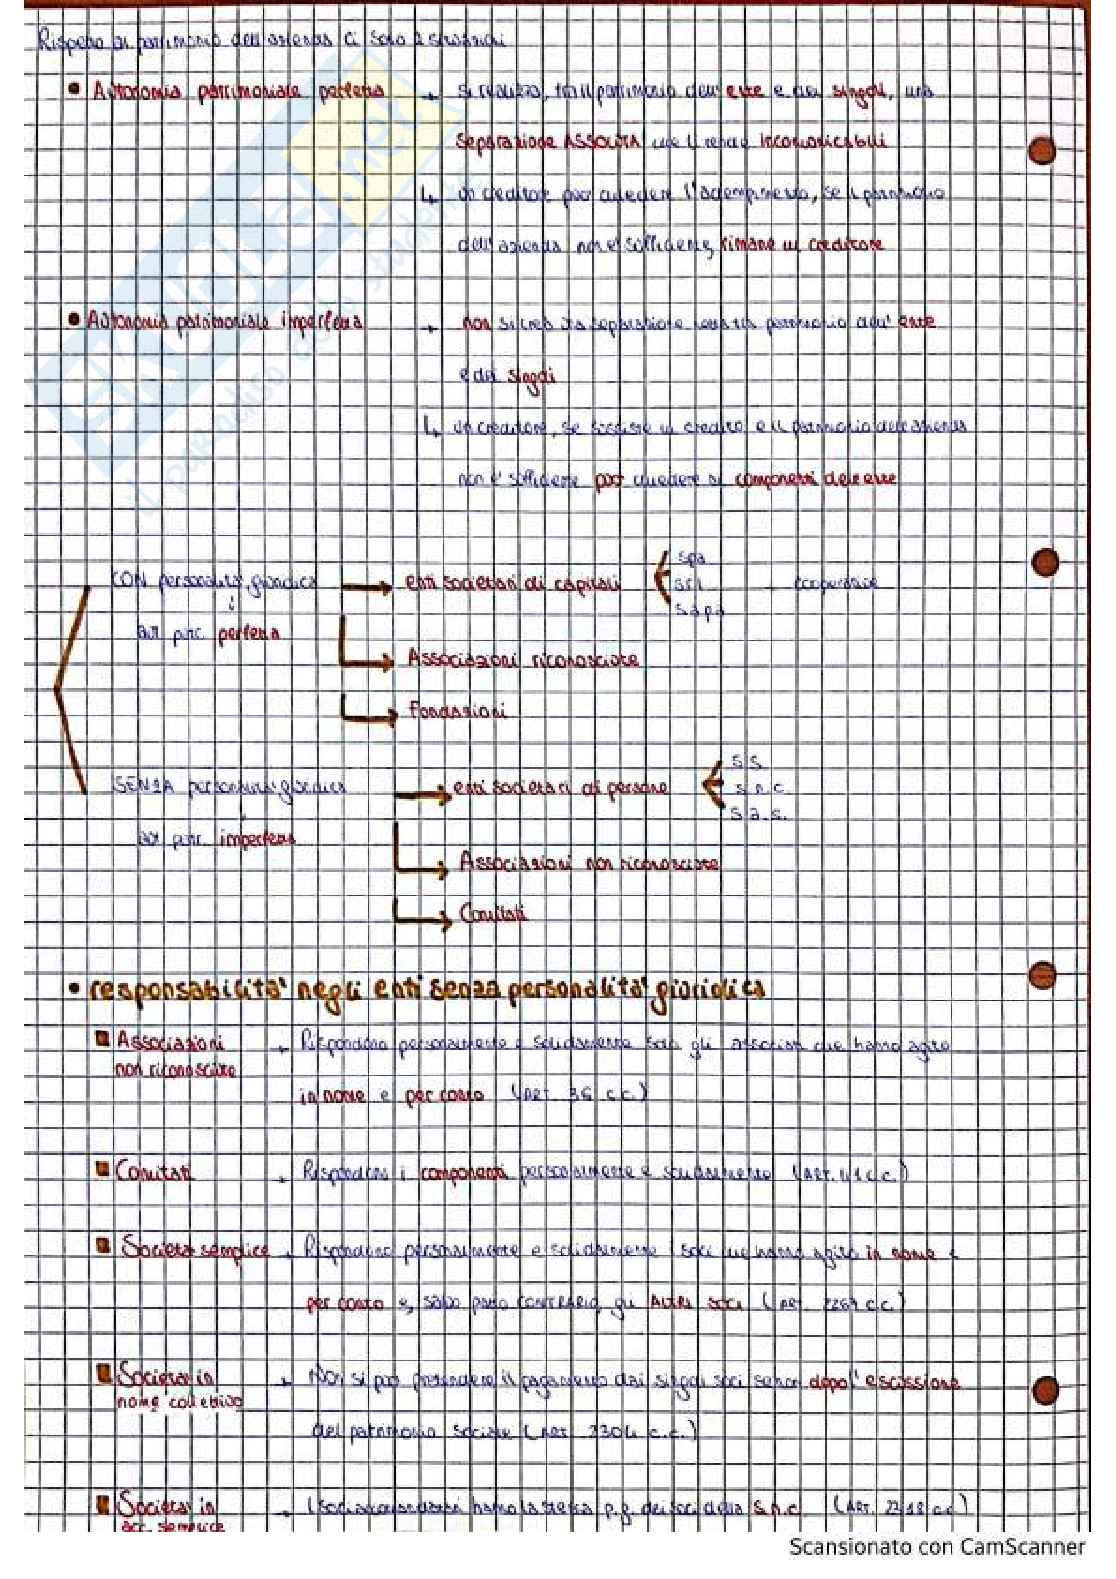 Rispetto al patrimonio dell'azienda ci sono 2 situazioni
• Autonomia patrimoniale perfetta → si realizza, tra il patrimonio dell'ente e dei singoli, una
separazione ASSOLUTA che li rende incomunicabili
↳ un creditore può chiedere l'adempimento, se il patrimonio
dell'azienda non e' sufficiente, rimane un creditore
• Autonomia patrimoniale imperfetta → non si crea una separazione netta tra patrimonio dell'ente
e dei singoli
↳ un creditore, se sussiste un credito e il patrimonio dell'azienda
non e' sufficiente può chiedere ai componenti dell'ente
CON personalità giuridica → enti societari di capitali
spa
srl
sapa
cooperative
aut patr. perfetta
→ Associazioni riconosciute
→ Fondazioni
SENZA personalità giuridica → enti societari di persone
s.s.
s.n.c.
s.a.s.
aut patr. imperfetta
→ Associazioni non riconosciute
→ Comitati
• responsabilita' negli enti senza personalita' giuridica
Associazioni non riconosciute → Rispondono personalmente e solidalmente solo gli associati che hanno agito
in nome e per conto (ART 36 c.c.)
Comitati → Rispondono i componenti personalmente e solidalmente (ART. 41 c.c.)
Società semplice → Rispondono personalmente e solidalmente i soci che hanno agito in nome e
per conto e, salvo patto CONTRARIO, gli ALTRI soci (ART. 2267 c.c.)
Società in nome collettivo → Non si può pretendere il pagamento dai singoli soci se non dopo l'escussione
del patrimonio sociale (ART 2304 c.c.)
Società in acc. semplice → I soci accomandatari hanno la stessa p.g. dei soci della s.n.c. (ART. 2318 c.c.)
Scansionato con CamScanner